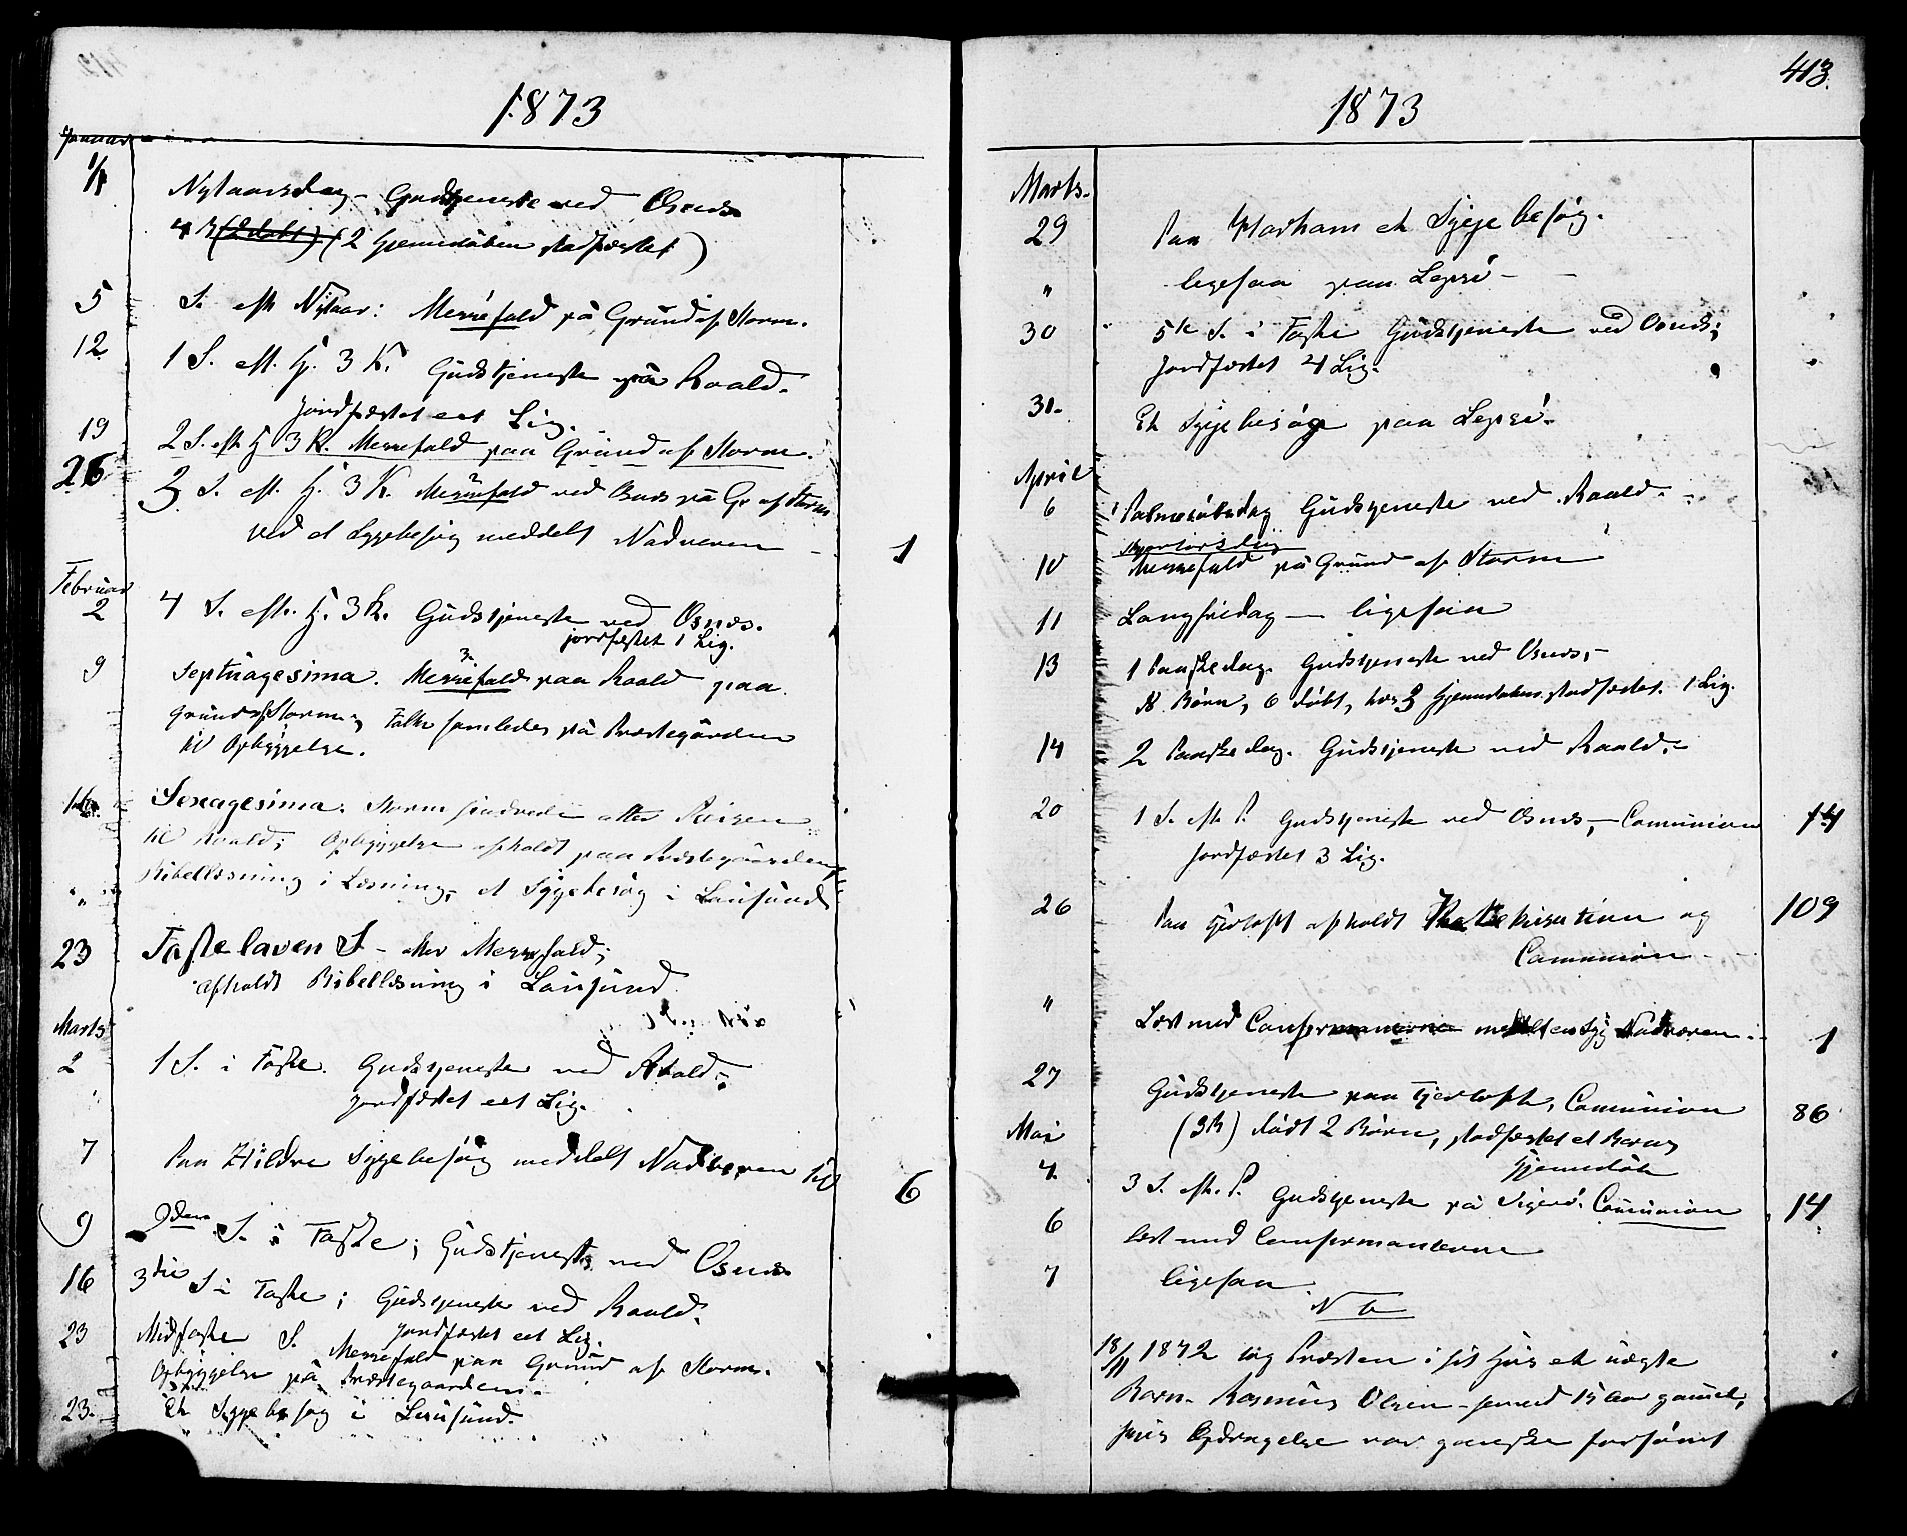 1873
Januar
1/1 Nytaarsdag - Gudstjeneste ved Osnæs
(2 døbt) (2 Hjemmedøbte stadfæstet)
5 S. eft Nytaar: Messefald på Grund af Storm.
12 1 S. eft. H. 3 K. Gudstjeneste på Roald.
jordfæstet eet Lig.
19 2 S. eft H 3 K. Messefald paa Grund af Storm.
26 3 S. eft. H. 3 K. Messefald ved Osnæs på Gr af Storm
ved et Sygebesøg meddelt Nadveren - 1
Februar
2 4 S. eft. H. 3 K. Gudstjeneste ved Osnæs.
jordfæstet 1 Lig.
9 Septuagesima. Messefald paa Roald paa
Grund af Storm; Folk samledes på Præstegården
til Opbyggelse.
16. Sexagesima. Storm hindrede atter Reisen
til Roald; Opbyggelse afholdt paa Præstegaarden
" Bibellæsning i Løsning, et Sygebesøg i Lausund
23 Fastelaven S - atter Messefald;
afholdt Bibellæsning i Lausund
Marts
2 1 S. i Faste. Gudstjeneste ved Roald;
jordfæstet eet Lig.
7 Paa Hildre Sygebesøg meddelt Nadveren til 6
9 2den S. i Faste; Gudstjeneste ved Osnæs
16 3die S i Faste; Gudstjeneste ved Roald.
jordfæstet eet Lig.
23 Midfaste S. Messefald paa Grund af Storm.
Opbyggelse på Præstegaarden.
23. Et Sygebesøg i Lausund.
413.
1873
Marts.
29 Paa Harham et Sygebesøg.
" ligesaa paa Lepsø -
30 5te S. i Faste Gudstjeneste ved Osnæs;
Jordfæstet 4 Lig.
31. Et Sygebesøg paa Lepsø.
April
6 Palmesøndag Gudstjeneste ved Roald.
Skjærtorsdag
10 Messefald på Grund af Storm
11 Langfredag - ligesaa
13 1 Paaskedag. Gudstjeneste ved Osnæs,
8 Børn, 6 døbt, Hjemmedøbte stadfæstet. 1 Lig.
14 2 Paaskedag. Gudstjeneste ved Roald.
20 1 S. eft P. Gudstjeneste ved Osnæs, - Communion 14
Jordfæstet 3 Lig.
26 Paa Fjertoft afholdt Katekisation og 109
Communion -
" Læst med Confirmanterne meddelt en Syg Nadveren 1
27 Gudstjeneste paa Fjertoft, Communion 86
døbt 2 Børn, stadfæstet et Barns
Hjemmedåb
Mai
4 3 S. eft. P. Gudstjeneste på Communion 14
6 læst med Confirmanterne
7 ligesaa
Nb
18/11 1872 tog Præsten i sit Hus et uægte
Barn. Rasmus Olsen - 15 Aar gammel,
hvis Opdragelse var ganske forsømt